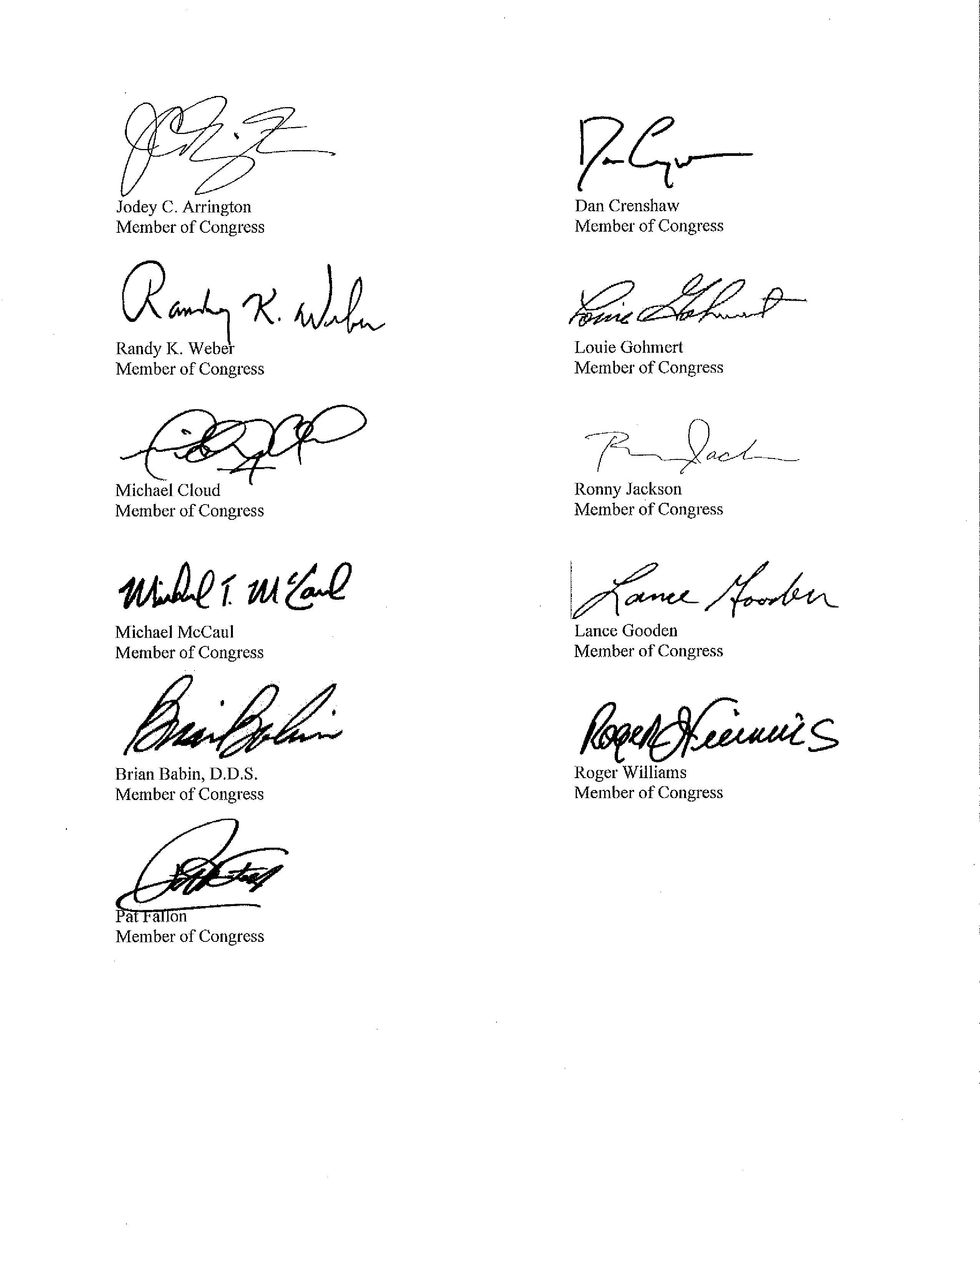 Jodey C. Arrington
Member of Congress
Dan Crenshaw
Member of Congress
Randy K. Weber
Randy K. Weber
Member of Congress
Louie Gohmert
Louie Gohmert
Member of Congress
Michael Cloud
Member of Congress
Ronny Jackson
Member of Congress
Michael T. McCaul
Michael McCaul
Member of Congress
Lance Gooden
Lance Gooden
Member of Congress
Brian Babin
Brian Babin, D.D.S.
Member of Congress
Roger Williams
Roger Williams
Member of Congress
Pat Fallon
Member of Congress